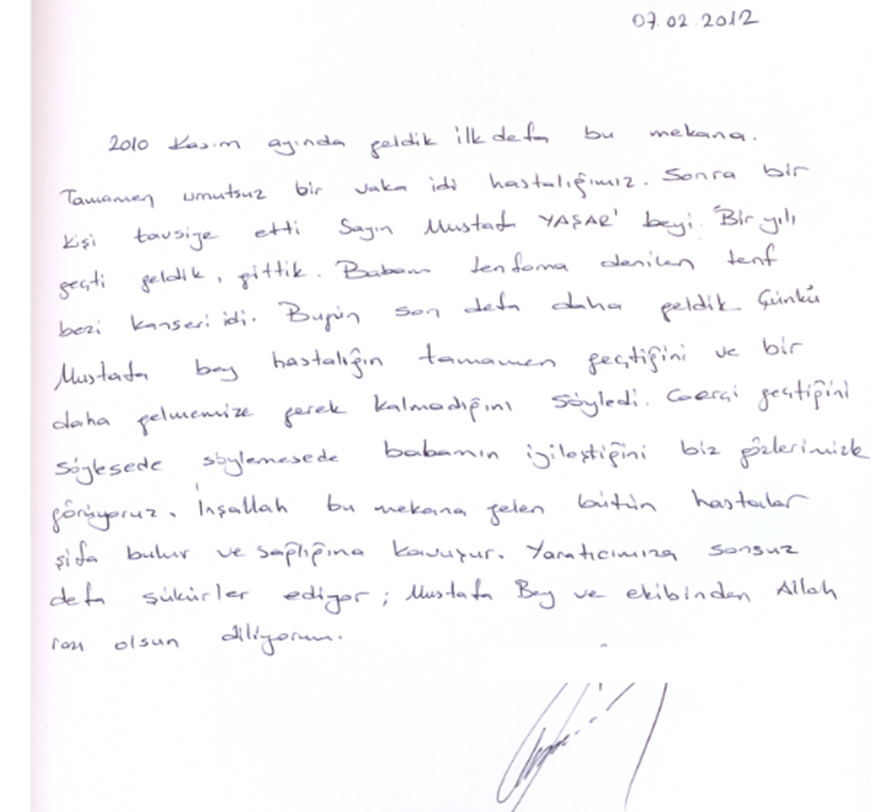 07.02.2012
2010 Kasım ayında geldik ilk defa bu mekana.
Tamamen umutsuz bir vaka idi hastalığımız. Sonra bir
kişi tavsiye etti Sayın Mustafa YAŞAR' beyi. Bir yılı
geçti geldik, gittik. Babam lenfoma denilen lenf
bezi kanseri idi. Bugün son defa daha geldik Çünkü
Mustafa bey hastalığın tamamen geçtiğini ve bir
daha gelmemize gerek kalmadığını söyledi. Gerçi geçtiğini
söylesede söylemesede babamın iyileştiğini biz gözlerimizle
görüyoruz. İnşallah bu mekana gelen bütün hastalar
şifa bulur ve sağlığına kavuşur. Yaratıcımıza sonsuz
defa şükürler ediyor; Mustafa Bey ve ekibinden Allah
razı olsun diliyorum.